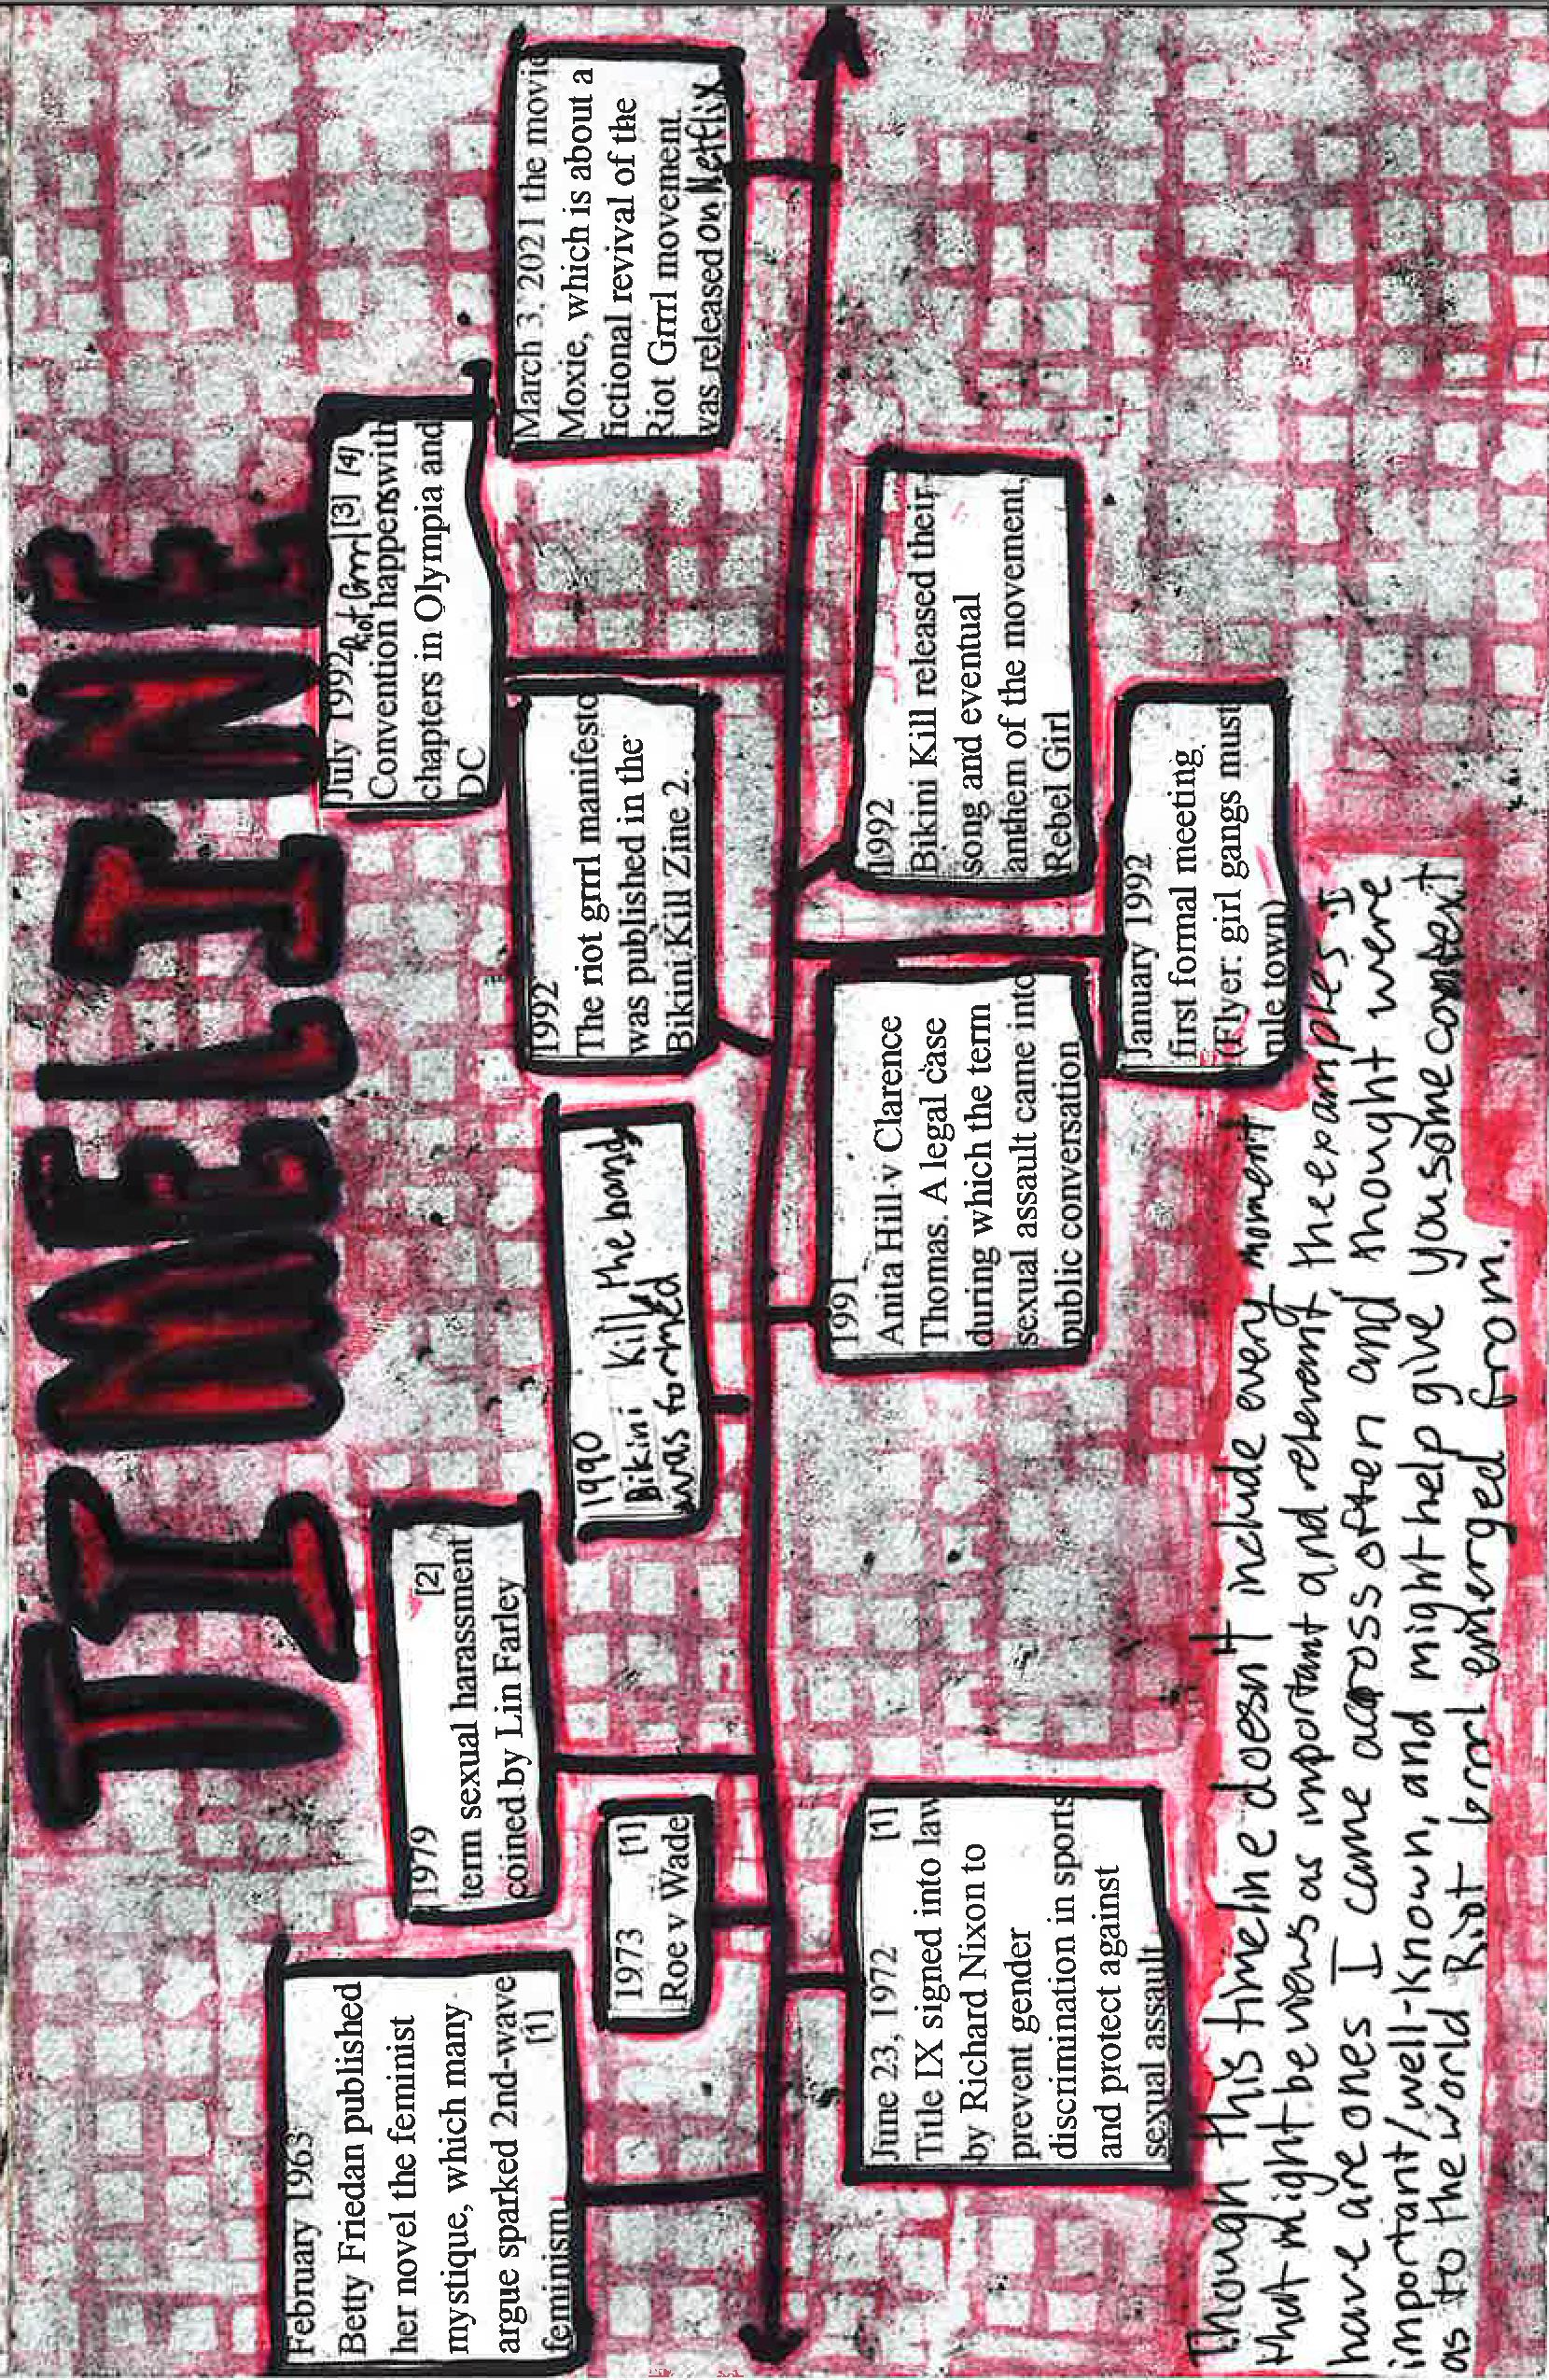 TIMELINE
February 1963
Betty Friedan published
her novel the feminist
mystique, which many
argue sparked 2nd-wave
feminism. [1]
June 23, 1972
Title IX signed into law [1]
by Richard Nixon to
prevent gender
discrimination in sports
and protect against
sexual assault
1973 [1]
Roe v Wade
1979 [2]
term sexual harassment
coined by Lin Farley
1990
Bikini Kill, the band,
was formed
1991
Anita Hill v Clarence
Thomas. A legal case
during which the term
sexual assault came into
public conversation
1992
The riot grrrl manifesto
was published in the
Bikini Kill Zine 2.
January 1992
first formal meeting
(Flyer: girl gangs must
rule town)
1992
Bikini Kill released their
song and eventual
anthem of the movement,
Rebel Girl
July 1992 Riot Grrrl [3] [4]
Convention happens with
chapters in Olympia and
DC
March 3, 2021 the movie
Moxie, which is about a
fictional revival of the
Riot Grrrl movement
was released on Netflix
Though this timeline doesn't include every moment
that might be views as important and relevant, the examples I
have are ones I came across often and thought were
important/well-known, and might help give you some context
as to the world Riot Grrrl emerged from.